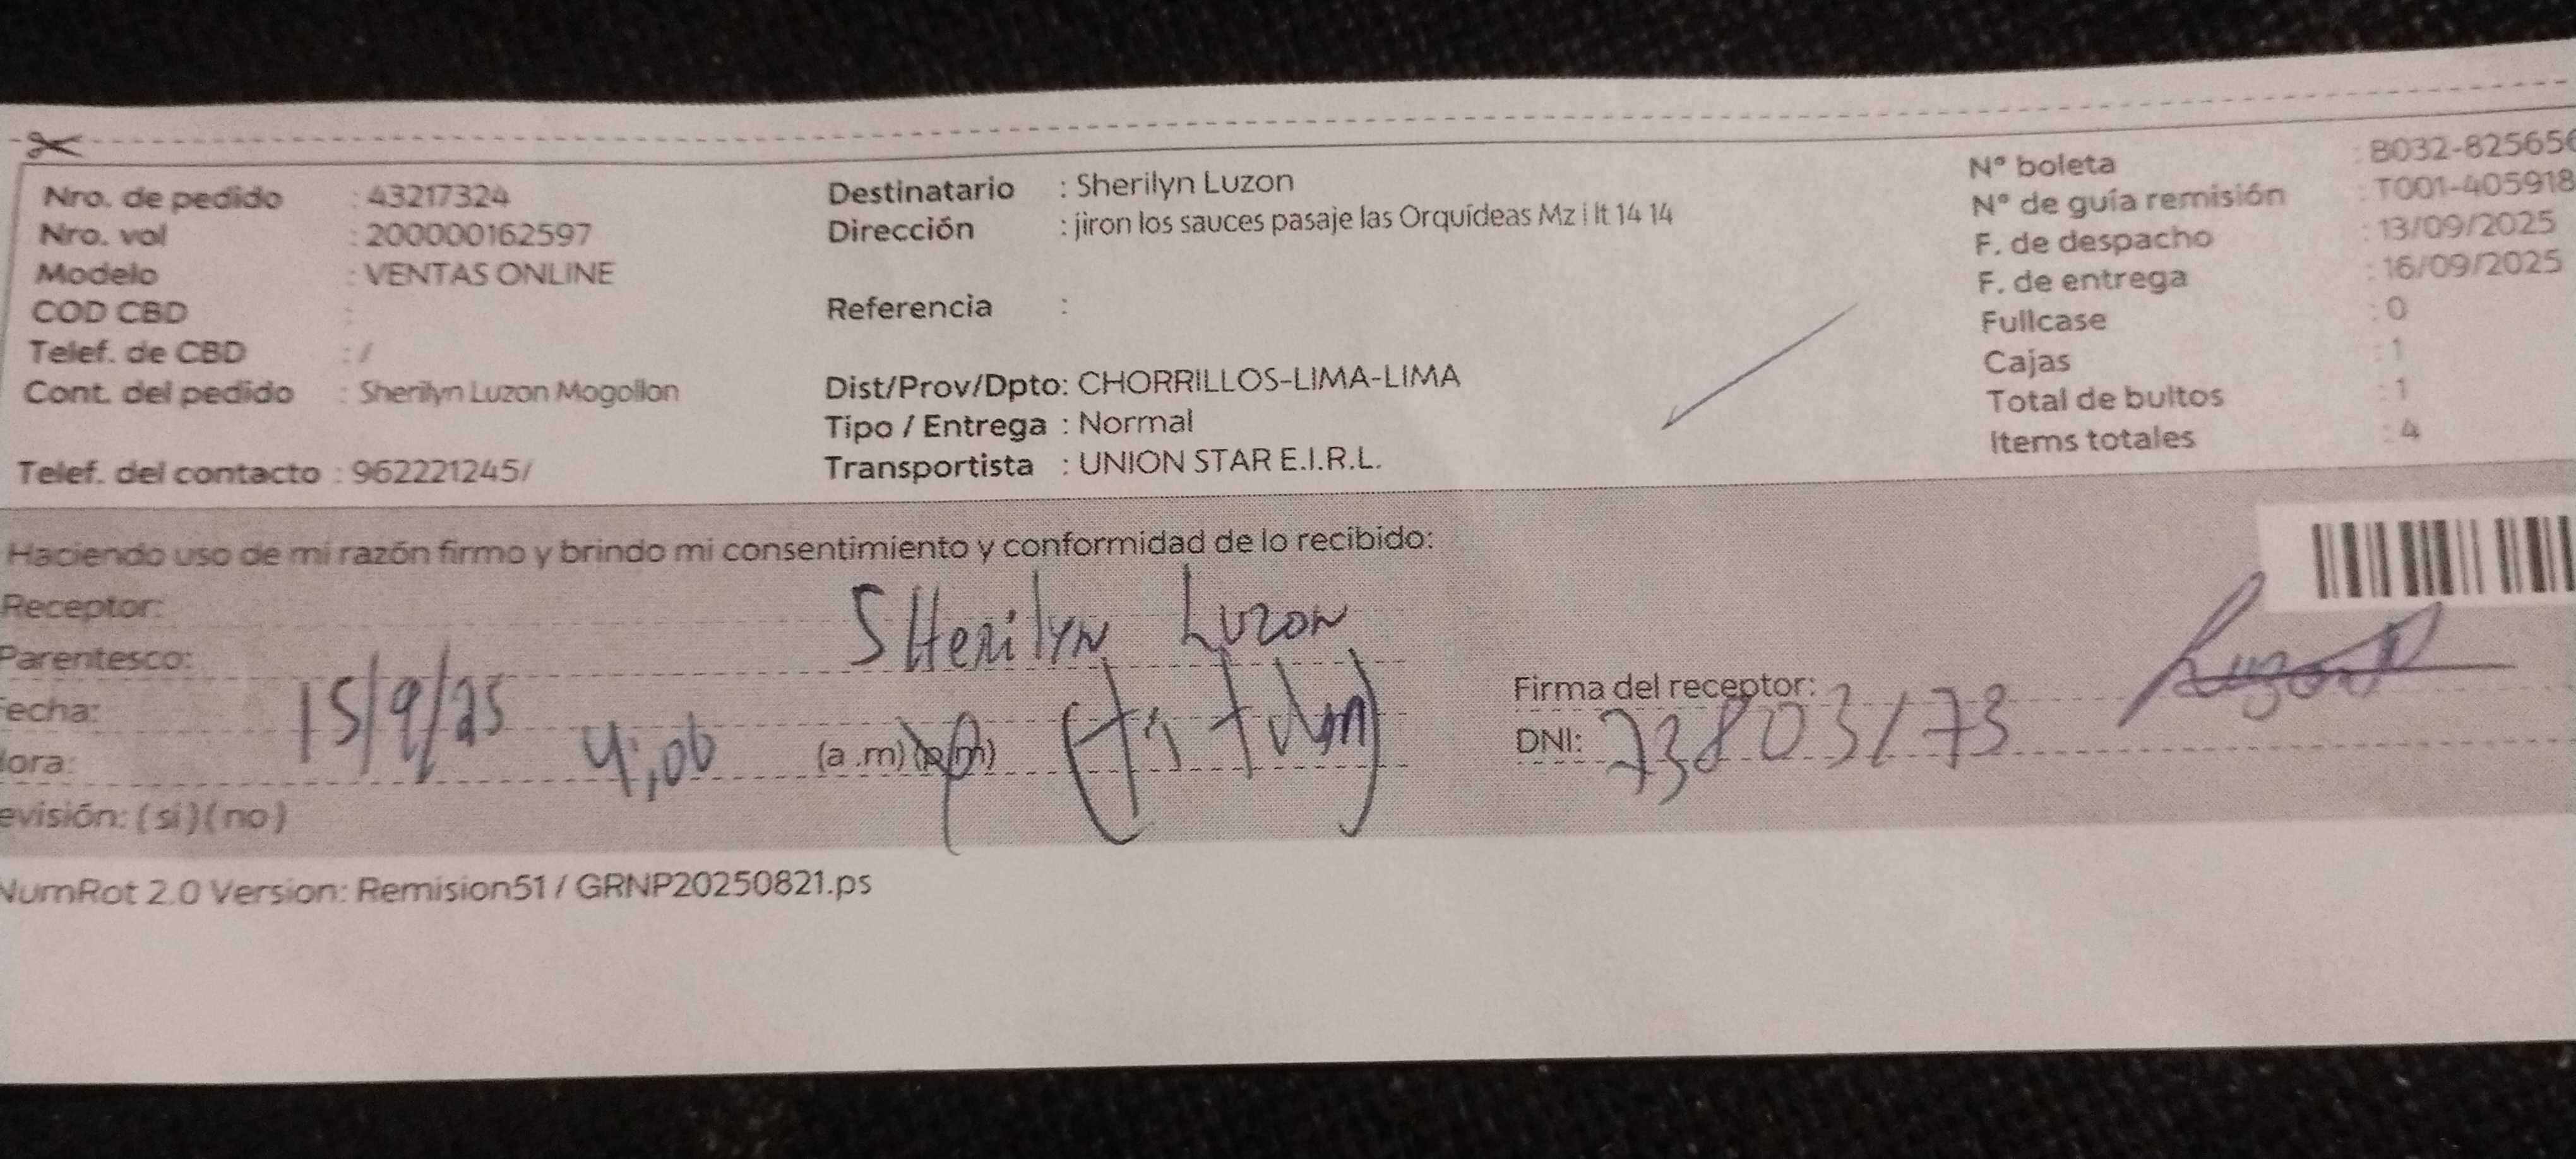 Nro. de pedido : 43217324
Nro. vol : 200000162597
Modelo : VENTAS ONLINE
COD CBD :
Telef. de CBD : /
Cont. del pedido : Sherilyn Luzon Mogollon
Telef. del contacto : 962221245/
Destinatario : Sherilyn Luzon
Dirección : jiron los sauces pasaje las Orquídeas Mz i lt 14 14
Referencia :
Dist/Prov/Dpto: CHORRILLOS-LIMA-LIMA
Tipo / Entrega : Normal
Transportista : UNION STAR E.I.R.L.
N° boleta : B032-825656
N° de guía remisión : T001-405918
F. de despacho : 13/09/2025
F. de entrega : 16/09/2025
Fullcase : 0
Cajas : 1
Total de bultos : 1
Items totales : 4
Haciendo uso de mi razón firmo y brindo mi consentimiento y conformidad de lo recibido:
Receptor: SHerilyn Luzon
Parentesco: (titular)
echa: 15/9/25
ora: 4:00 (a .m) (p.m)
evisión: ( si ) ( no )
Firma del receptor: Luzon
DNI: 73803173
NumRot 2.0 Version: Remision51 / GRNP20250821.ps